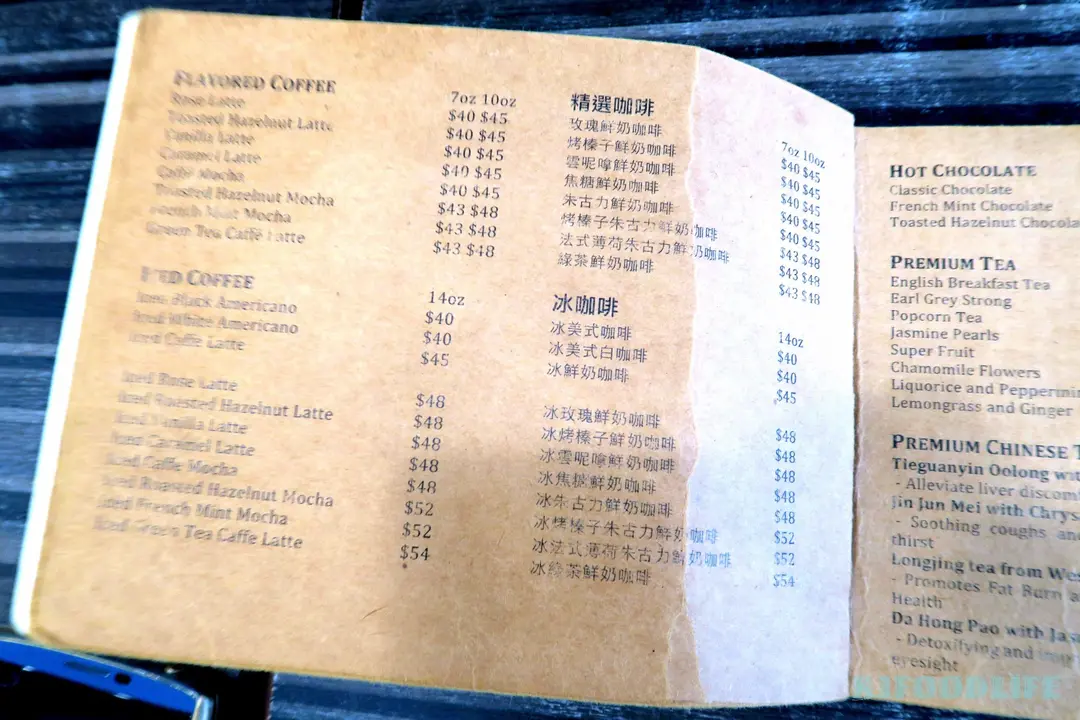 FLAVORED COFFEE 7oz 10oz
Rose Latte $40 $45
Toasted Hazelnut Latte $40 $45
Vanilla Latte $40 $45
Caramel Latte $40 $45
Caffe Mocha $40 $45
Toasted Hazelnut Mocha $43 $48
French Mint Mocha $43 $48
Green Tea Caffe Latte $43 $48
ICED COFFEE 14oz
Iced Black Americano $40
Iced White Americano $40
Iced Caffe Latte $45
Iced Rose Latte $48
Iced Roasted Hazelnut Latte $48
Iced Vanilla Latte $48
Iced Caramel Latte $48
Iced Caffe Mocha $48
Iced Roasted Hazelnut Mocha $52
Iced French Mint Mocha $52
Iced Green Tea Caffe Latte $54
精選咖啡 7oz 10oz
玫瑰鮮奶咖啡 $40 $45
烤榛子鮮奶咖啡 $40 $45
雲呢嗱鮮奶咖啡 $40 $45
焦糖鮮奶咖啡 $40 $45
朱古力鮮奶咖啡 $40 $45
烤榛子朱古力鮮奶咖啡 $43 $48
法式薄荷朱古力鮮奶咖啡 $43 $48
綠茶鮮奶咖啡 $43 $48
冰咖啡 14oz
冰美式咖啡 $40
冰美式白咖啡 $40
冰鮮奶咖啡 $45
冰玫瑰鮮奶咖啡 $48
冰烤榛子鮮奶咖啡 $48
冰雲呢嗱鮮奶咖啡 $48
冰焦糖鮮奶咖啡 $48
冰朱古力鮮奶咖啡 $48
冰烤榛子朱古力鮮奶咖啡 $52
冰法式薄荷朱古力鮮奶咖啡 $52
冰綠茶鮮奶咖啡 $54
HOT CHOCOLATE
Classic Chocolate
French Mint Chocolate
Toasted Hazelnut Chocola
PREMIUM TEA
English Breakfast Tea
Earl Grey Strong
Popcorn Tea
Jasmine Pearls
Super Fruit
Chamomile Flowers
Liquorice and Peppermin
Lemongrass and Ginger
PREMIUM CHINESE T
Tieguanyin Oolong wit
- Alleviate liver discom
Jin Jun Mei with Chrys
- Soothing coughs and
thirst
Longjing tea from We
- Promotes Fat Burn a
Health
Da Hong Pao with Jas
- Detoxifying and
eyesight